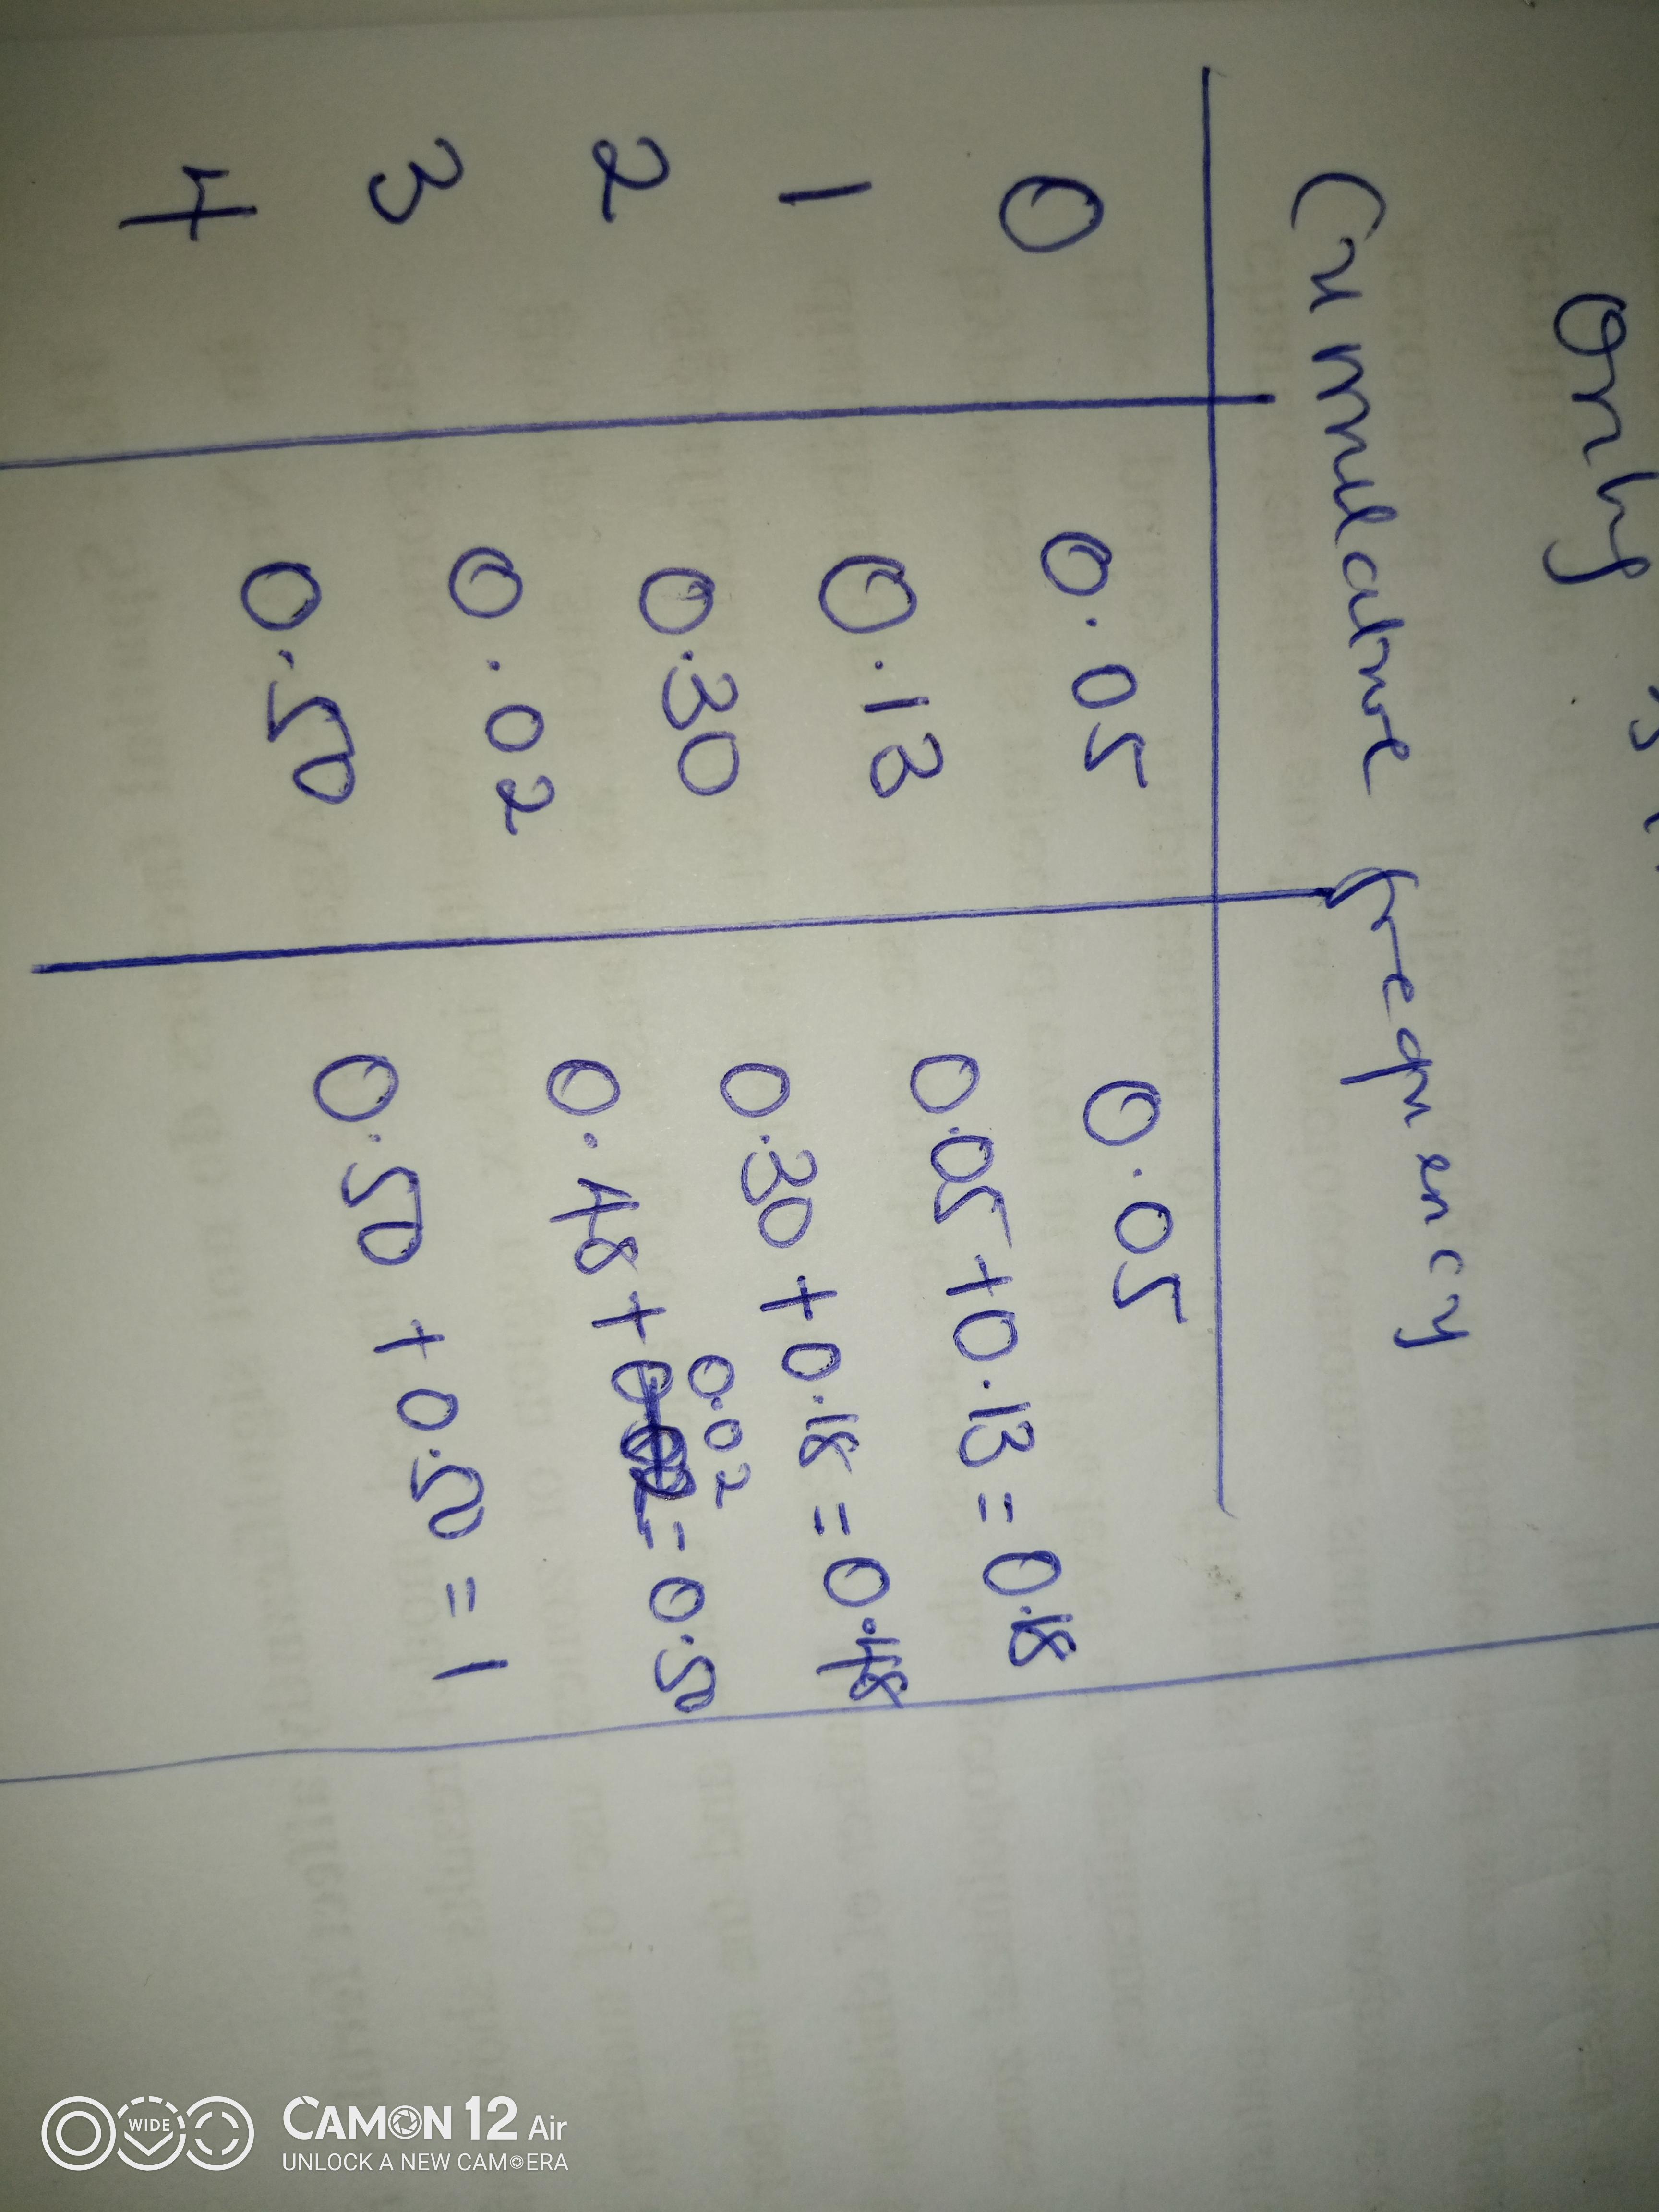 Only
Cummulative frequency
0 0.05 0.05
1 0.13 0.05+0.13=0.18
2 0.30 0.30+0.18=0.48
0.02
3 0.02 0.48+ =0.50
4 0.50 0.50+0.50=1
WIDE CAMON 12 Air
UNLOCK A NEW CAMERA